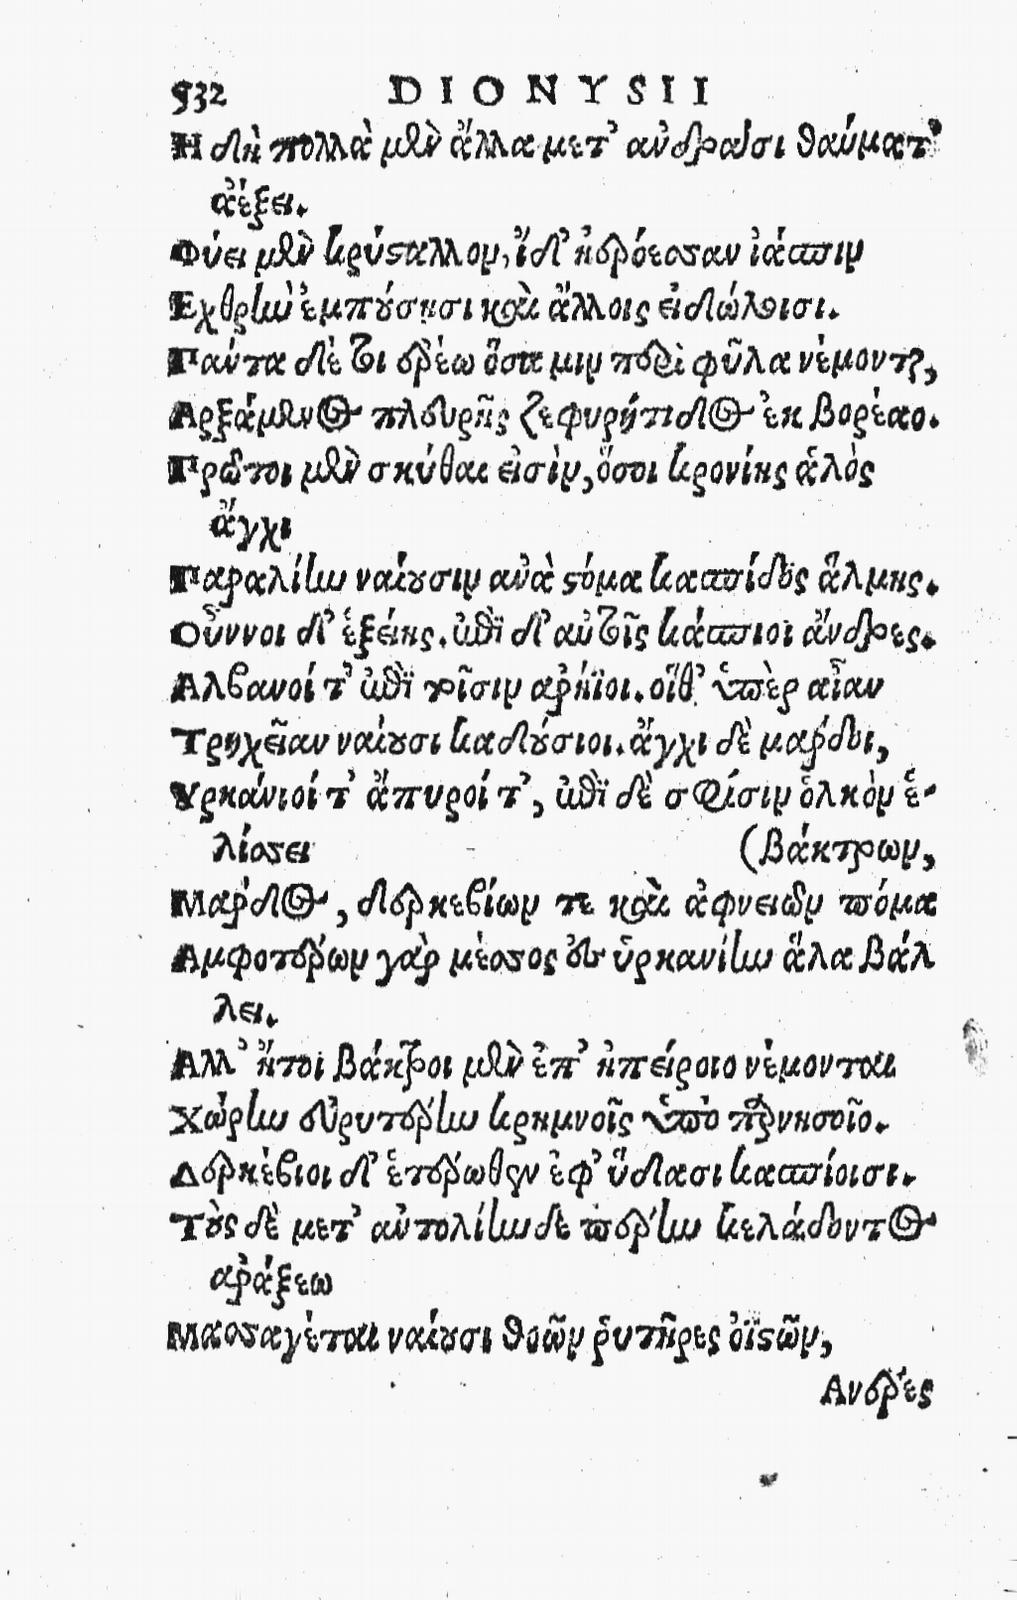 932 DIONYSII
Η δὴ πολλὰ μὲν ἄλλα μετ' ἀνδράσι θαύματ'
ἀέξει.
Φύει μὲν κρύσταλλον, ἰδ' ἠερόεσσαν ἰάσπιν
Εχθρὴν ἐμπούσησι καὶ ἄλλοις εἰδώλοισι.
Πάντα δέ τοι ἐρέω ὅσα μιν περὶ φῦλα νέμονται,
Αρξάμενος πλευρῆς ζεφυρήτιδος ἐκ βορέαο.
Πρῶτοι μὲν σκύθαι εἰσὶν, ὅσοι κρονίης ἁλὸς
ἄγχι
Παραλίην ναίουσιν ἀνὰ στόμα κασπίδος ἅλμης.
Οὖννοι δ' ἑξείης. ἐπὶ δ' αὐτοῖς κάσπιοι ἄνδρες.
Αλβανοί τ' ἐπὶ τοῖσιν ἀρήϊοι. οἵθ' ὑπὲρ αἶαν
Τρηχεῖαν ναίουσι καδούσιοι. ἄγχι δὲ μάρδοι,
Υρκάνιοί τ' ἄπυροί τ', ἐπὶ δὲ σφίσιν ὁλκὸν ἑ-
λίσσει (βάκτρων,
Μάρδος, δερκεβίων τε καὶ ἀφνειῶν πόμα
Αμφοτέρων γὰρ μέσσος ἐς ὑρκανίην ἅλα βάλ
λει.
Αλλ' ἤτοι βάκτροι μὲν ἐπ' ἠπείροιο νέμονται
Χώρην εὐρυτέρην κρημνοῖς ὑπὸ παρνησοῖο.
Δερκέβιοι δ' ἑτέρωθεν ἐφ' ὕδασι κασπίοισι.
Τοὺς δὲ μετ' ἀντολίην δε πέρην κελάδοντος
ἀράξεω
Μασσαγέται ναίουσι θοῶν ῥυτῆρες ὀϊστῶν,
Ανέρες